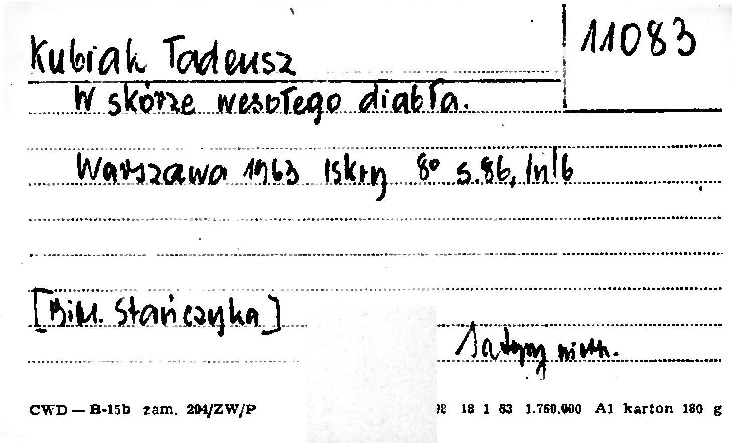 11083
Kubiak Tadeusz
W skórze wesołego diabła.
Warszawa 1963 Iskry 8° s.86, /nlb
[Bibl. Stańczyka]
Satyry
CWD — B-15b zam. 204/ZW/P 18 1 63 1.760.000 A1 karton 180 g